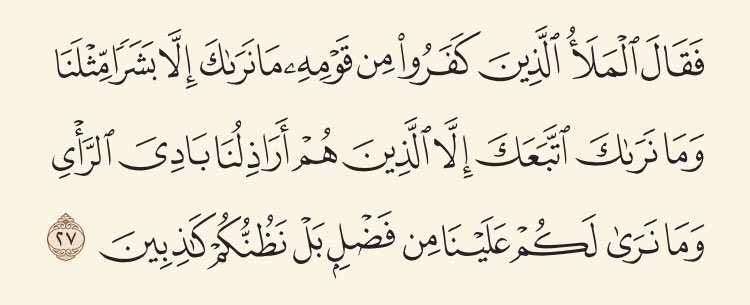 فَقَالَ ٱلۡمَلَأُ ٱلَّذِينَ كَفَرُواْ مِن قَوۡمِهِۦ مَا نَرَىٰكَ إِلَّا بَشَرٗا مِّثۡلَنَا
وَمَا نَرَىٰكَ ٱتَّبَعَكَ إِلَّا ٱلَّذِينَ هُمۡ أَرَاذِلُنَا بَادِيَ ٱلرَّأۡيِ
وَمَا نَرَىٰ لَكُمۡ عَلَيۡنَا مِن فَضۡلِۭ بَلۡ نَظُنُّكُمۡ كَٰذِبِينَ ٢٧